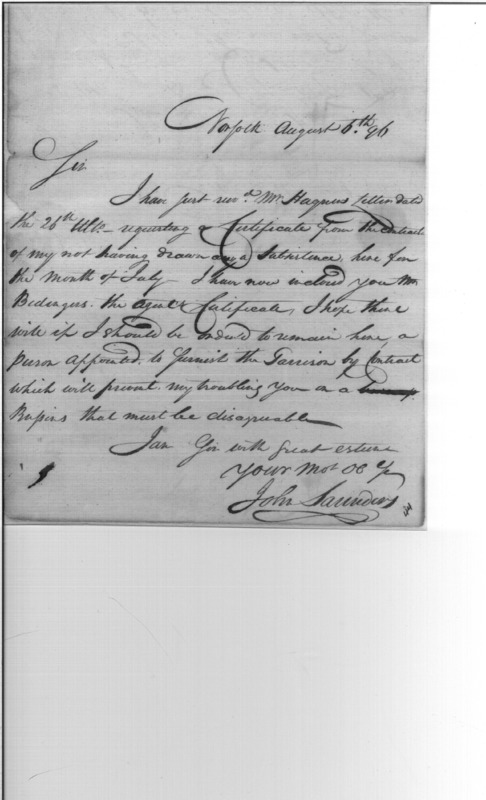 Norfolk August 6.th 96
Sir
I have just recd. Mr. Hagners letter dated
the 26th Ulto requesting a Certificate from the Contract
of my not having drawn any Subsistence here for
the Month of July I have now inclosd you Mr
Bedingers. the agent Certificate, I hope there
will if I should be orderd to remain here, a
person appointed to furnish the Garrison by Contract
which will prevent my troubling you on a
Bussins that must be disagreeable
I am Sir with great esteem
your Mot Ob
John Saunders